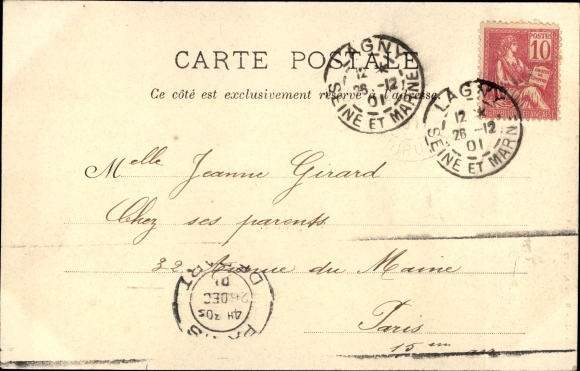 CARTE POSTALE
Ce côté est exclusivement réservé à l'adresse
POSTES
10
LAGNY
12
26 -12
01
SEINE ET MARNE
LAGNY
12
26 -12
01
SEINE ET MARNE
Melle Jeanne Girard
Chez ses parents
32 Avenue du Maine
Paris
15 em
PARIS
4H 30S
26 DEC
01
DEPART